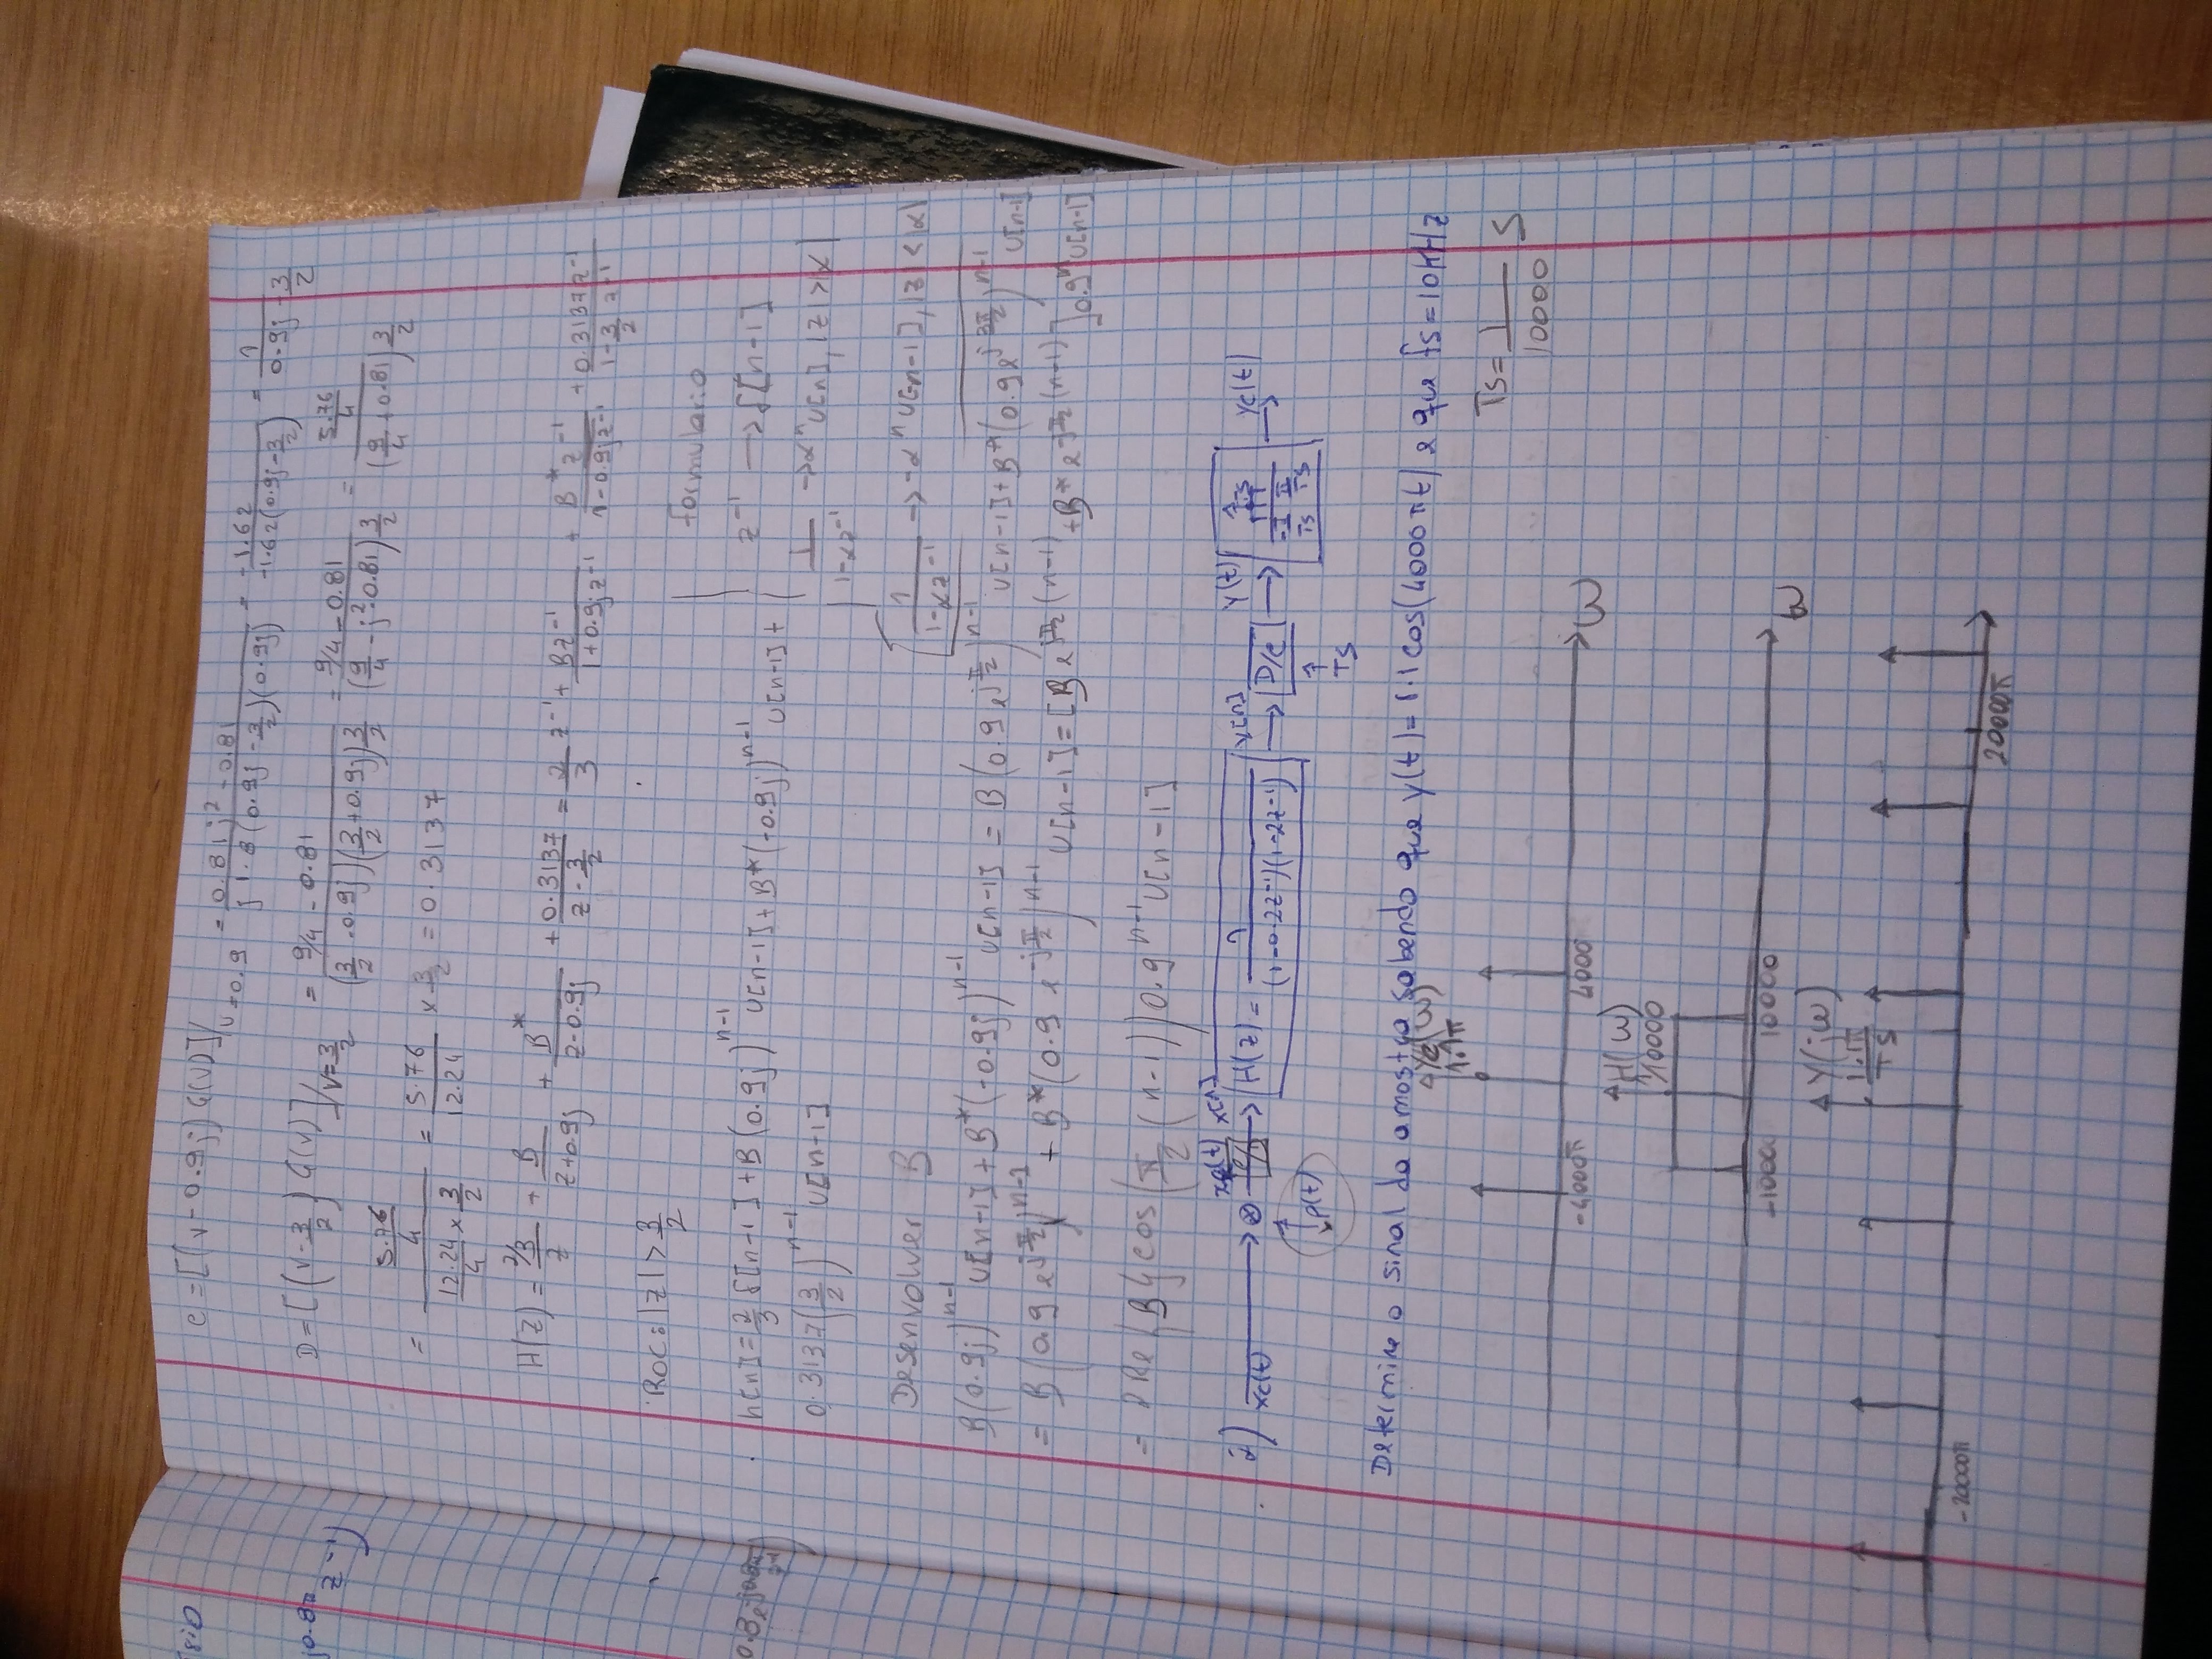 C = [(v-0.9j) G(v)]/v=0.9 = 0.81j² - 0.81 / j1.8(0.9j - 3/2)(0.9j) = -1.62 / -1.62(0.9j - 3/2) = 1 / 0.9j - 3/2
D = [(v - 3/2) G(v)]/v=3/2 = 9/4 - 0.81 / (3/2 - 0.9j)(3/2 + 0.9j) 3/2 = 9/4 - 0.81 / (9/4 - j² 0.81) 3/2 = 5.76/4 / (9/4 + 0.81) 3/2
= 5.76/4 / 12.24/4 × 3/2 = 5.76 / 12.24 × 3/2 = 0.3137
H(z) = 2/3 / z + B / z+0.9j + B* / z-0.9j + 0.3137 / z - 3/2 = 2/3 z⁻¹ + Bz⁻¹ / 1+0.9jz⁻¹ + B* z⁻¹ / 1-0.9jz⁻¹ + 0.3137z⁻¹ / 1 - 3/2 z⁻¹
ROC: |z| > 3/2
formulario
z⁻¹ → δ[n-1]
h[n] = 2/3 δ[n-1] + B(0.9j)ⁿ⁻¹ u[n-1] + B*(-0.9j)ⁿ⁻¹ u[n-1] +
0.3137(3/2)ⁿ⁻¹ u[n-1]
1 / 1-αz⁻¹ → αⁿ u[n], |z| > |α|
Desenvolver B
1 / 1-αz⁻¹ → -αⁿ u[-n-1], |z| < |α|
B(0.9j)ⁿ⁻¹ u[n-1] + B*(-0.9j)ⁿ⁻¹ u[n-1] = B(0.9 e^jπ/2)ⁿ⁻¹ u[n-1] + B*(0.9 e^j3π/2)ⁿ⁻¹ u[n-1]
= B(0.9 e^jπ/2)ⁿ⁻¹ + B*(0.9 e^-jπ/2)ⁿ⁻¹ u[n-1] = [B e^jπ/2(n-1) + B* e^-jπ/2(n-1)] 0.9ⁿ u[n-1]
= 2Re{B} cos(π/2 (n-1)) 0.9ⁿ⁻¹ u[n-1]
2) xc(t) → ⊗ → x[n] → H(z) = 1 / (1-0.2z⁻¹)(1-2z⁻¹) y[n] → D/C → Y(t) → Ts -π/Ts π/Ts → Yc(t)
p(t)
Ts
Determine o sinal da amostra sabendo que Y(t) = 1.1 cos(4000πt) e que fs = 10HHz
Ts = 1 / 10000 S
Yc(ω)
1.1π
-4000π 4000 ω
H(ω)
1/10000
-10000 10000 ω
Y(jω)
1.1π / TS
-20000π 20000π